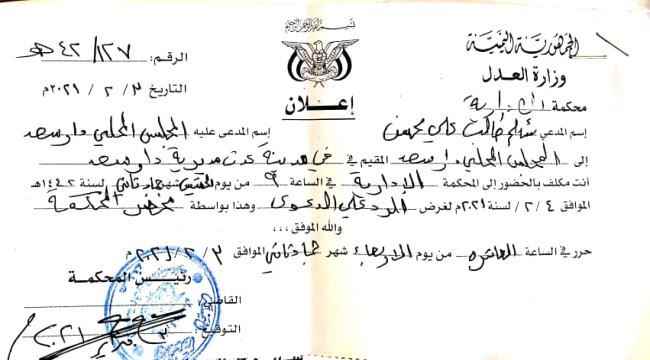 بسم الله الرحمن الرحيم
الجمهورية اليمنية
وزارة العدل
محكمة الإدارية
الرقم: ٤٢/١٢٧هـ
التاريخ ٣ / ٢ / ٢٠٢١م
إعلان
إسم المدعي علي محسن إسم المدعى عليه المجلس المحلي دار سعد
إلى المجلس المحلي دار سعد المقيم في مدينة عدن مديرية دار سعد
أنت مكلف بالحضور إلى المحكمة الإدارية في الساعة ٩ من يوم شهر جماد ثاني لسنة ١٤٤٢هـ
الموافق ٤ / ٢ / لسنة ٢٠٢١م لغرض الرد على الدعوى وهذا بواسطة محضر المحكمة
والله الموفق،،،
حرر في الساعة العاشره من يوم الاربعاء شهر جماد ثاني الموافق ٣ / ٢ / ٢٠٢١م
رئيس المحكمة
القاضي:
التوقيع: